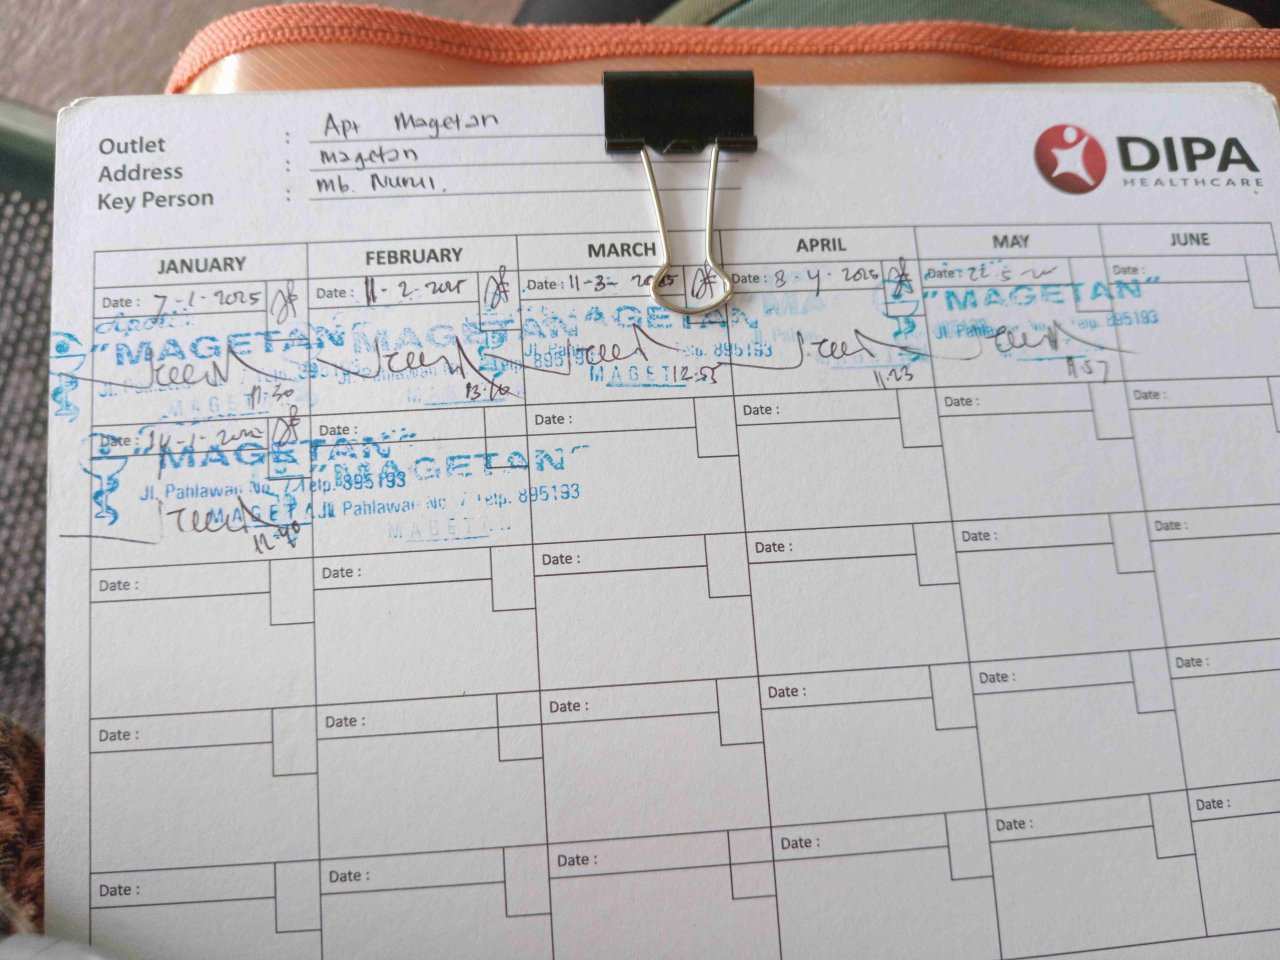 Outlet : Apt Magetan
Address : Magetan
Key Person : Mb. Nurul.
DIPA
HEALTHCARE
JANUARY FEBRUARY MARCH APRIL MAY JUNE
Date : 7-1-2025 Date : 11-2-2025 Date : 11-3- 2025 Date : 8-4-2025 Date : 22-5- Date :
"MAGETAN" MAGETAN MAGETAN "MAGETAN"
Jl. Pahlawan No. Telp. 895193
MAGET
11.30 13. 12.53 11.23 11.57
Date : -1- Date : Date : Date : Date : Date :
"MAGETAN" "MAGETAN"
Jl. Pahlawan No. 7 Telp. 895193 Jl. Pahlawan No. 7 Telp. 895193
MAGETA MAGETAN
12.40
Date : Date : Date : Date : Date : Date :
Date : Date : Date : Date : Date : Date :
Date : Date : Date : Date : Date : Date :